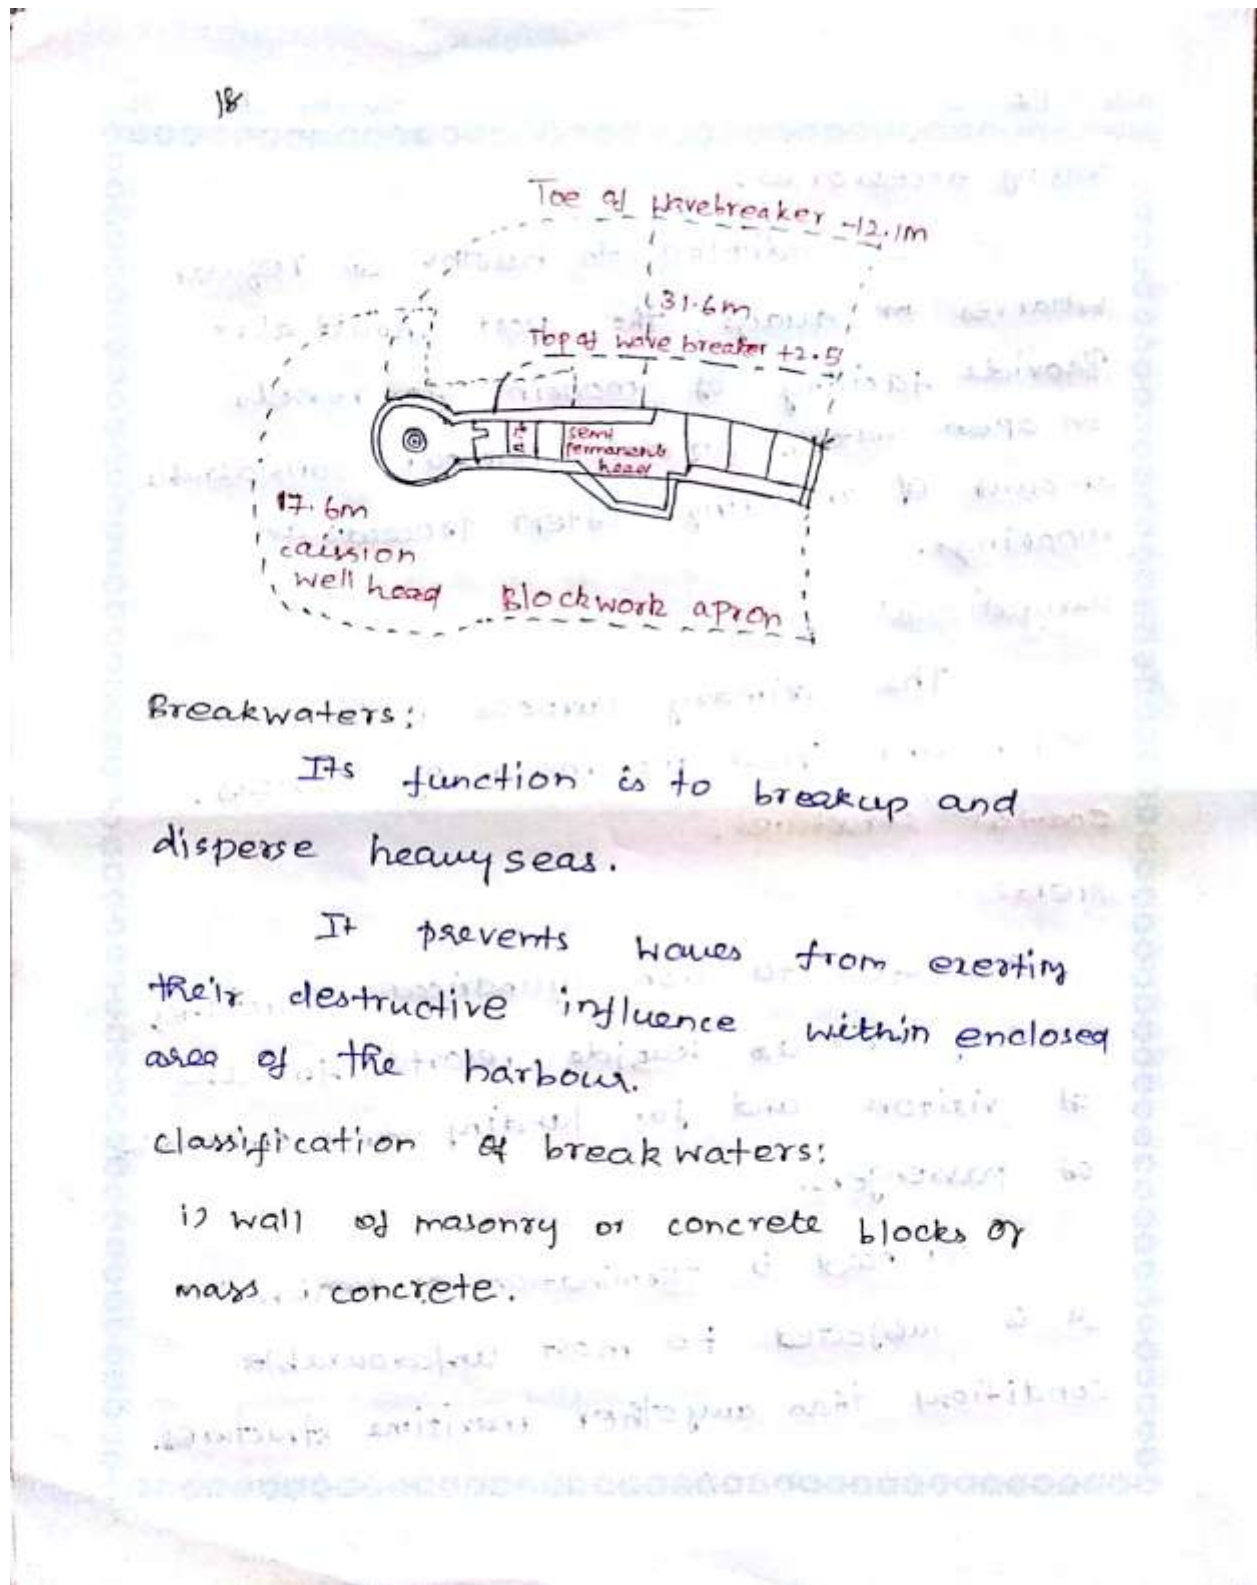 18
Toe of Wavebreaker -12.1m
31.6m
Top of wave breaker +2.5
semi
permanent
head
17.6m
caission
well head
Blockwork apron
Breakwaters:
Its function is to breakup and
disperse heavy seas.
It prevents waves from exerting
their destructive influence within enclosed
area of the harbour.
classification of break waters:
i) wall of masonry or concrete blocks or
mass concrete.